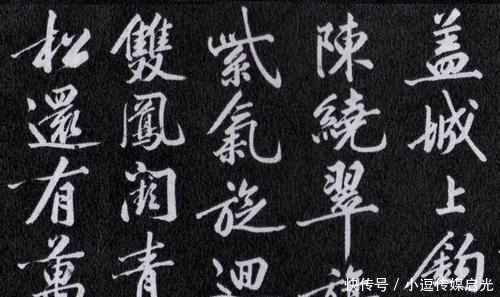 盖城上鈎
陳繞翠旗
紫氣旋迴
雙鳳闕青
松還有萬
快传号 / 小逗传媒启光